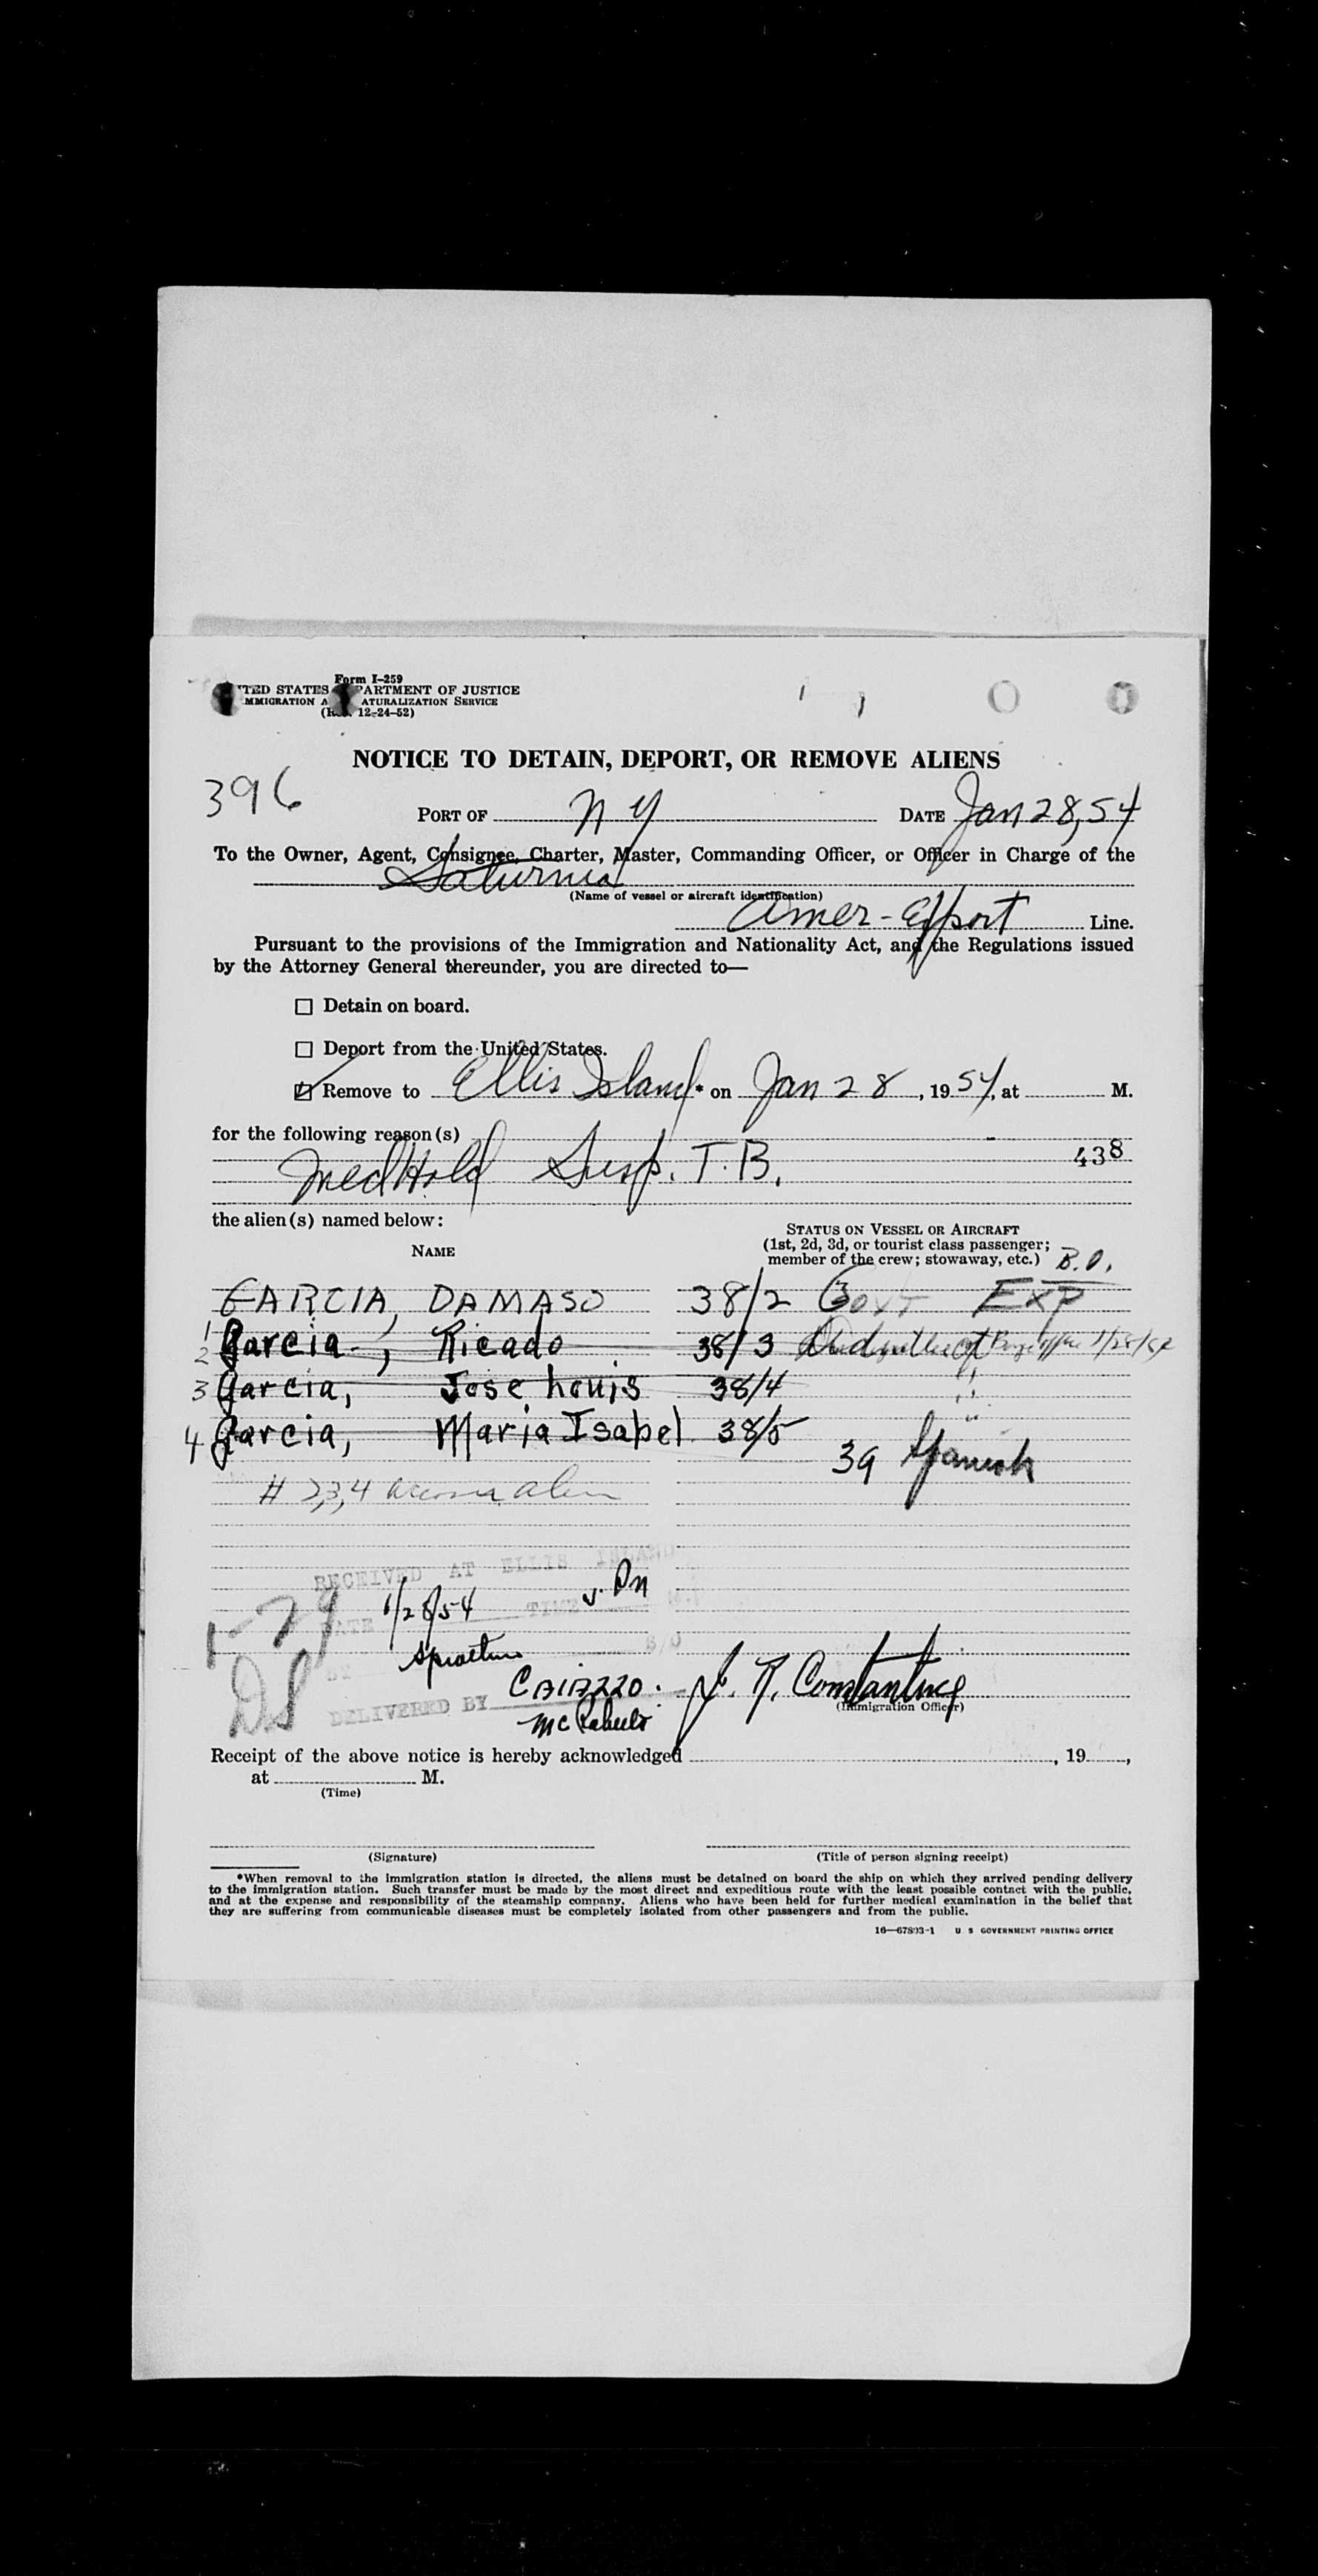 Form I-259
TED STATES PARTMENT OF JUSTICE
MMIGRATION A ATURALIZATION SERVICE
12-24-52)
NOTICE TO DETAIN, DEPORT, OR REMOVE ALIENS
396
PORT OF N Y DATE Jan 28, 54
To the Owner, Agent, Consignee, Charter, Master, Commanding Officer, or Officer in Charge of the
Saturnia
(Name of vessel or aircraft identification)
Amer-Export Line.
Pursuant to the provisions of the Immigration and Nationality Act, and the Regulations issued
by the Attorney General thereunder, you are directed to—
☐ Detain on board.
☐ Deport from the United States.
☑ Remove to Ellis Island* on Jan 28, 1954, at M.
for the following reason(s)
Med Hold Susp. T.B. 438
the alien(s) named below:
NAME
STATUS ON VESSEL OR AIRCRAFT
(1st, 2d, 3d, or tourist class passenger;
member of the crew; stowaway, etc.) B.O.
GARCIA, DAMASO 38/2 Govt EXP
1
2 Garcia, Ricado 38/3
3 Garcia, Jose Louis 38/4 "
4 Garcia, Maria Isabel 38/5 "
39 Spanish
# 2,3,4
RECEIVED AT ELLIS ISLAND
DATE 1/28/54 TIME
1-29
BY
DS
CAIAZZO. J. R. Constantine
DELIVERED BY
(Immigration Officer)
Receipt of the above notice is hereby acknowledged , 19 ,
at M.
(Time)
(Signature) (Title of person signing receipt)
*When removal to the immigration station is directed, the aliens must be detained on board the ship on which they arrived pending delivery
to the immigration station. Such transfer must be made by the most direct and expeditious route with the least possible contact with the public,
and at the expense and responsibility of the steamship company. Aliens who have been held for further medical examination in the belief that
they are suffering from communicable diseases must be completely isolated from other passengers and from the public.
16—67893-1 U S GOVERNMENT PRINTING OFFICE